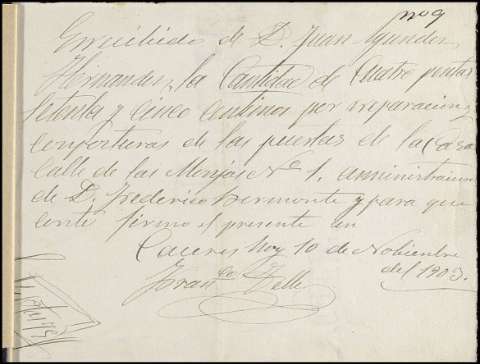 nº 9
Enrecibido de D. Juan
Hernandez, la Cantidad de Cuatro pesetas
setenta y cinco centimos por reparacion
de las puertas de la Casa
Calle de las Monjas Nº 1. aministracion
de D. Federico Bermonte y para que
conste firmo el presente en
Caceres hoy 10 de Nobienbre
del 1903.
Franco